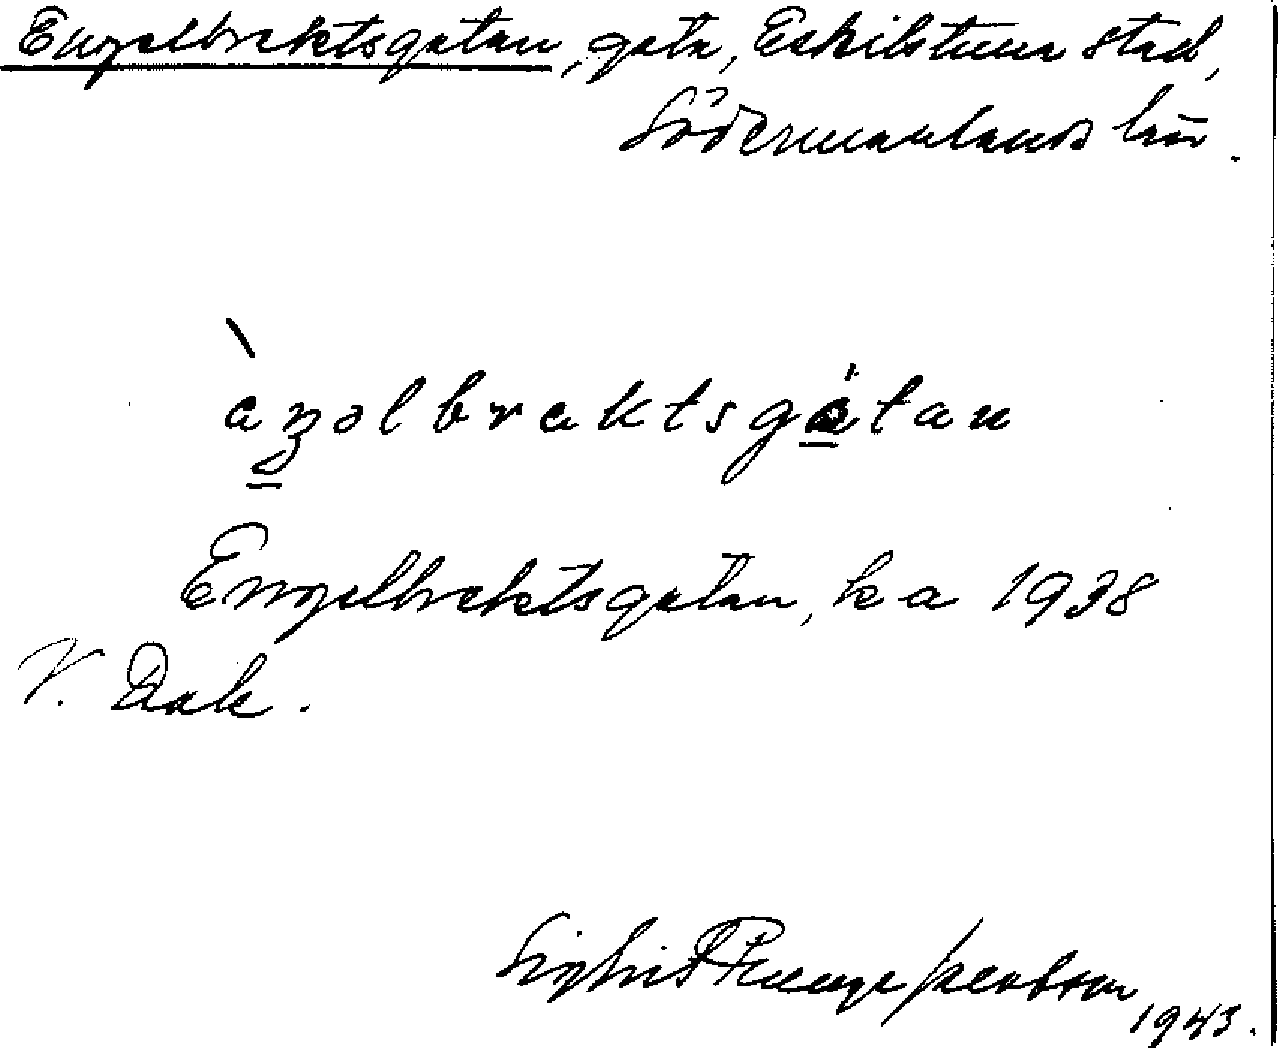 Engelbrektsgatan, gata, Eskilstuna stad,
Södermanlands län.
àŋəlbraktsgátan
Engelbrektsgatan, ka 1938
V. Dak.
1943.